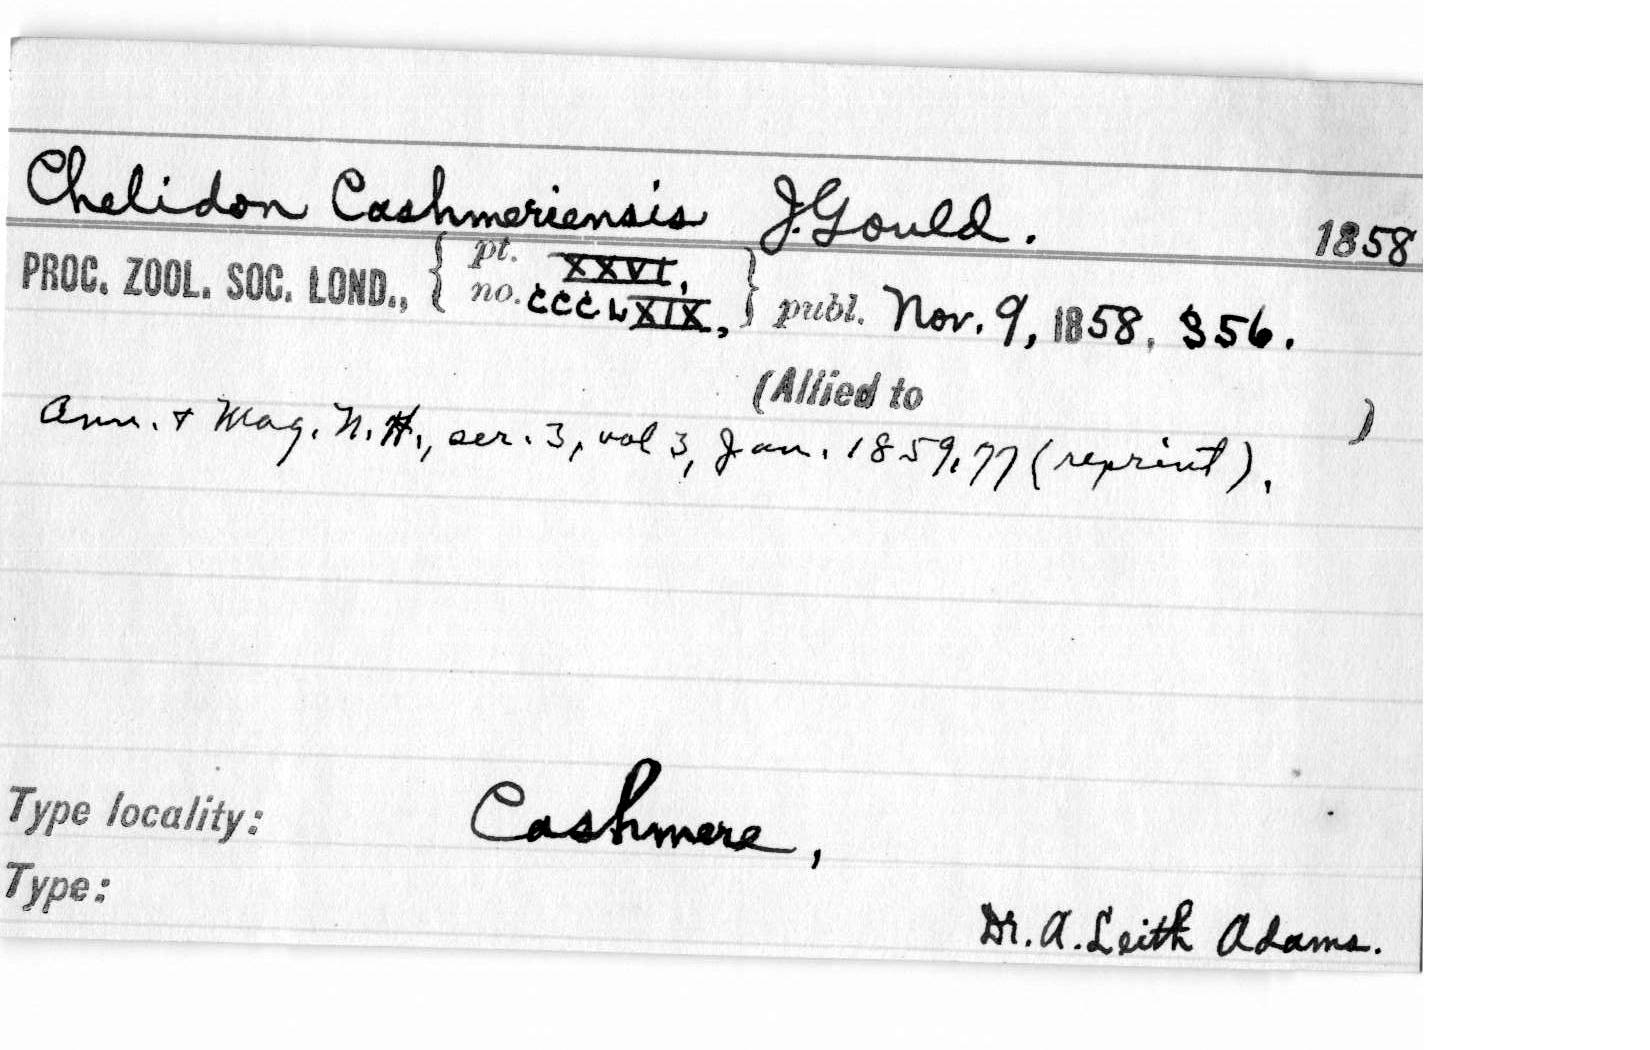 Chelidon Cashmeriensis J. Gould. 1858
PROC. ZOOL. SOC. LOND., { pt. XXVI, no. CCCLXIX, } publ. Nov. 9, 1858, 356.
(Allied to )
Ann. & Mag. N. H., ser. 3, vol 3, Jan. 1859, 77 (reprint).
Type locality: Cashmere,
Type:
Dr. A. Leith Adams.